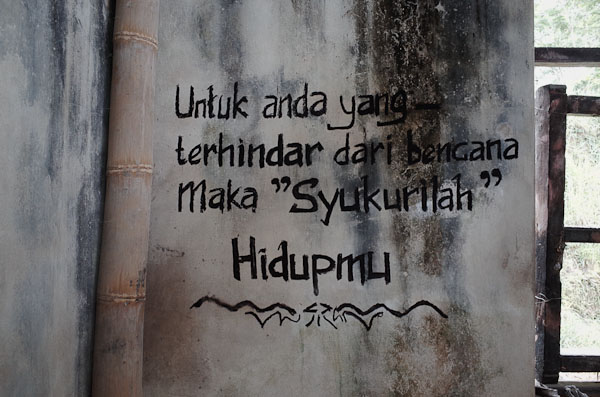 Untuk anda yang -
terhindar dari bencana
Maka "Syukurilah"
Hidupmu